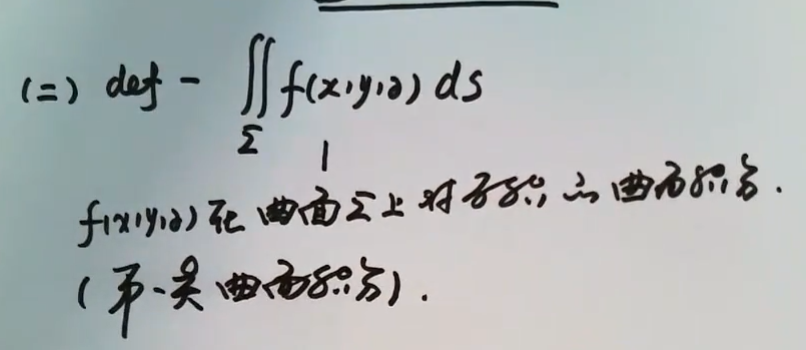 (二) def - ∬_Σ f(x,y,z) ds
f(x,y,z)在曲面Σ上对面积的曲面积分.
(第一类曲面积分).